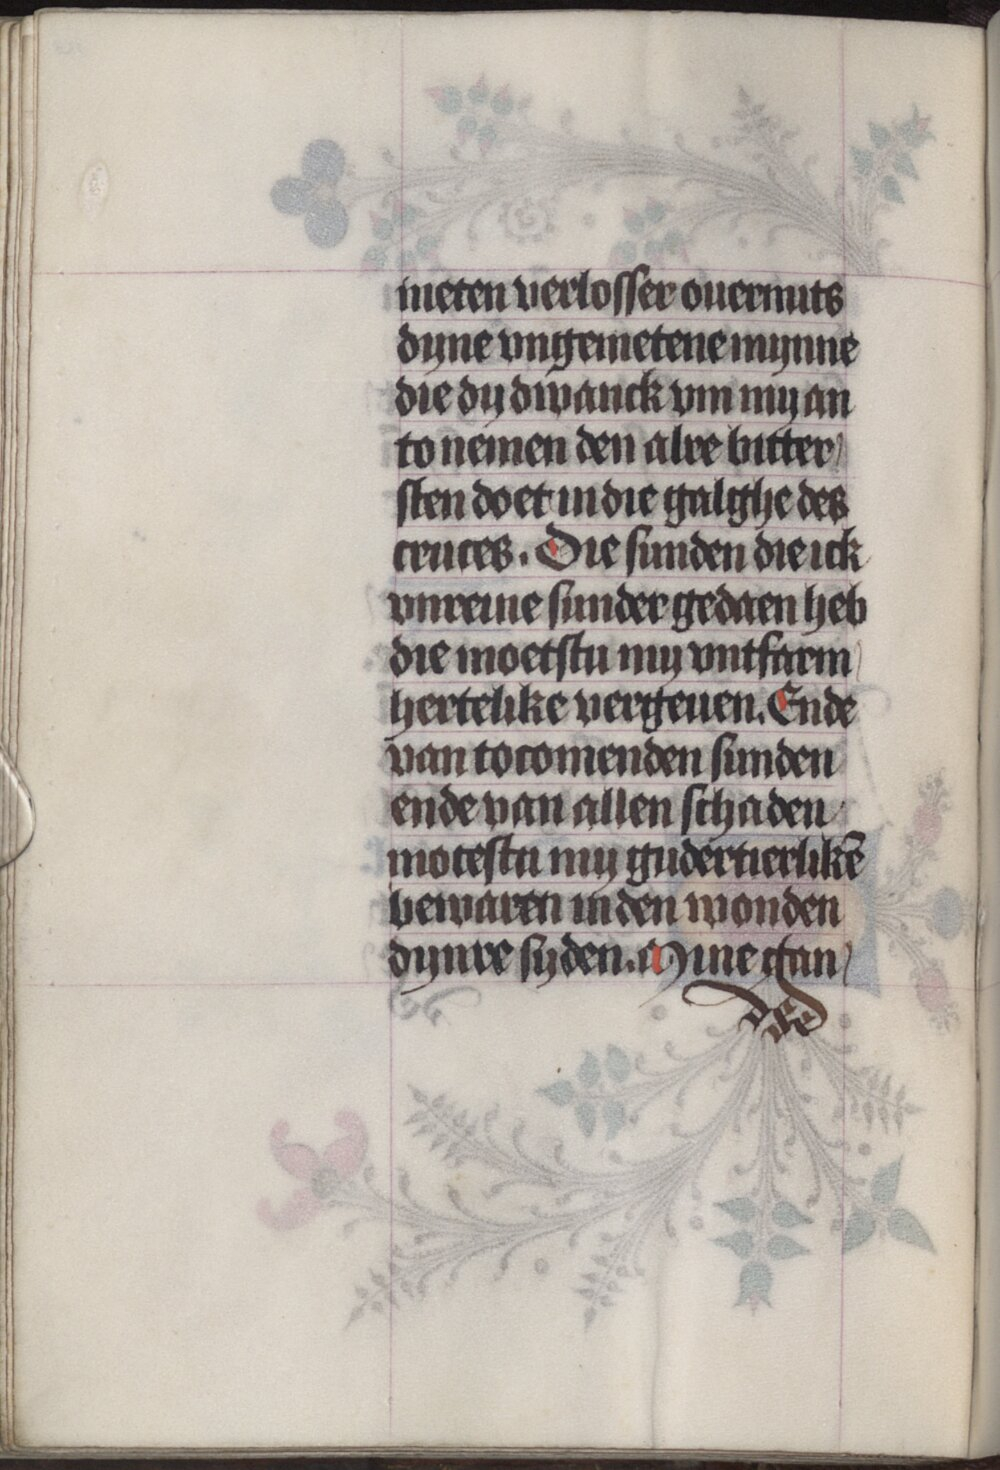 meten verlosser ouermits
dyne vngemetene mynne
die dy dwanck vm my an
to nemen den alre bitter
sten doet in die galghe des
cruces. Die sunden die ick
vnreine sunder gedaen heb
die moetstu my vntfarm
hertelike vergeuen. Ende
van tocomenden sunden
ende van allen schaden
motestu my gudertierlikē
bewaren in den wonden
dynre syden. Myne